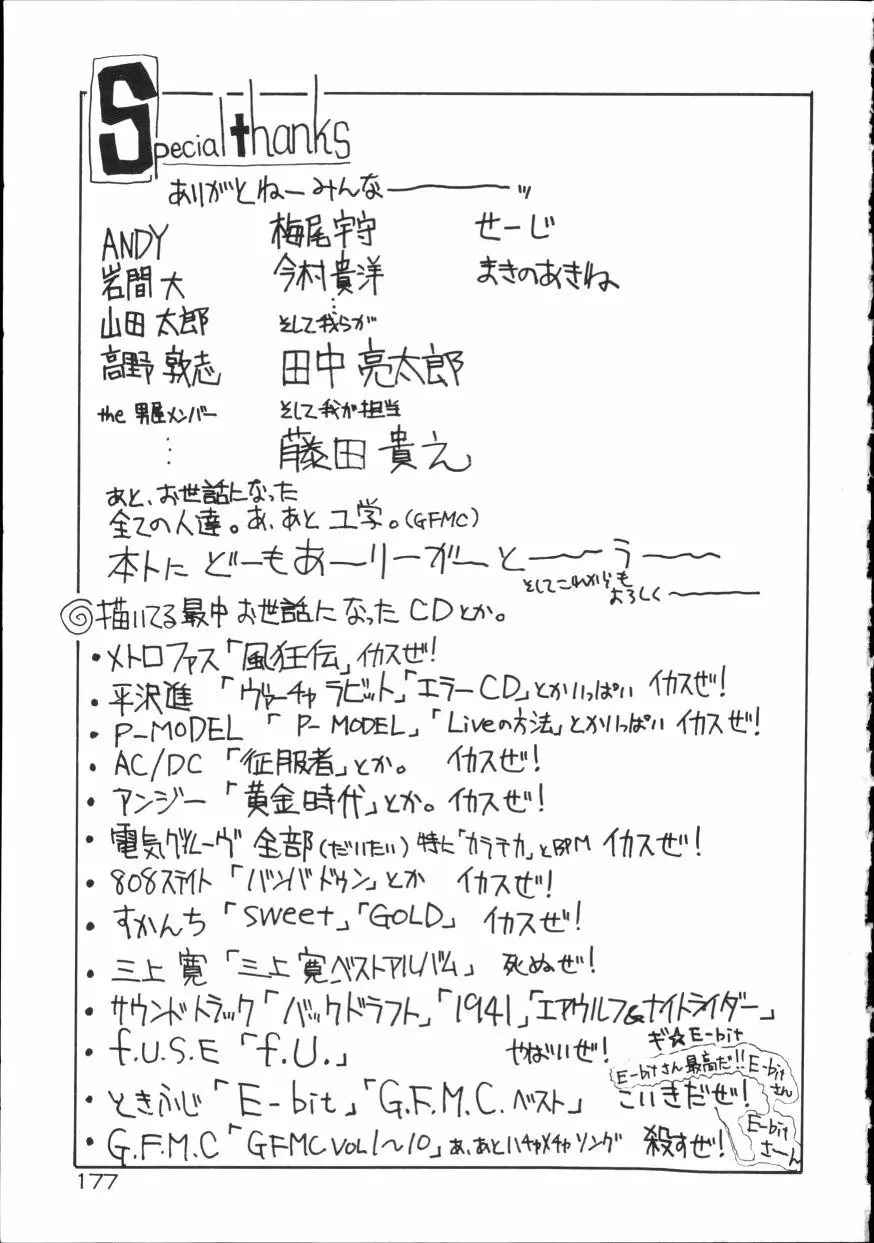 Special thanks
ありがとねーみんなーーーッ
ANDY
岩間 大
山田 太郎
高野 敦志
the 男屋メンバー
梅尾宇守
今村貴洋
そして我らが
田中 亮太郎
そして我が担当
藤田 貴え
せーじ
まきのあきね
あと、お世話になった
全ての人達。あ、あと ユ学。(GFMC)
本トに どーもあーりーがーとーーうーー
そしてこれからも
よろしく〜
◎描いてる最中 お世話になった CDとか。
・メトロファス「風狂伝」イカスぜ!
・平沢進 「ヴァーチャ ラビット」「エラーCD」とかいっぱい イカスぜ!
・P-MODEL 「P-MODEL」「Liveの方法」とかいっぱい イカスぜ!
・AC/DC 「征服者」とか。 イカスぜ!
・アンジー「黄金時代」とか。イカスぜ!
・電気グルーヴ 全部(だいたい) 特に「カラテカ」とBPM イカスぜ!
・808ステイト「バンバドゥン」とか イカスぜ!
・すかんち「sweet」「GOLD」 イカスぜ!
・三上 寛「三上 寛ベストアルバム」 死ぬぜ!
・サウンドトラック「バックドラフト」「1941」「エアウルフ&ナイトライダー」
・f.U.S.E「f.U.」 やばいぜ!
ギ☆E-bit
E-bitさん最高だ!!
E-bitさん
・ときふじ「E-bit」「G.F.M.C.ベスト」 こいきだぜ!
E-bit
さーん
・G.F.M.C「GFMC VOL1〜10」あ、あとハチャメチャソング 殺すぜ!
177